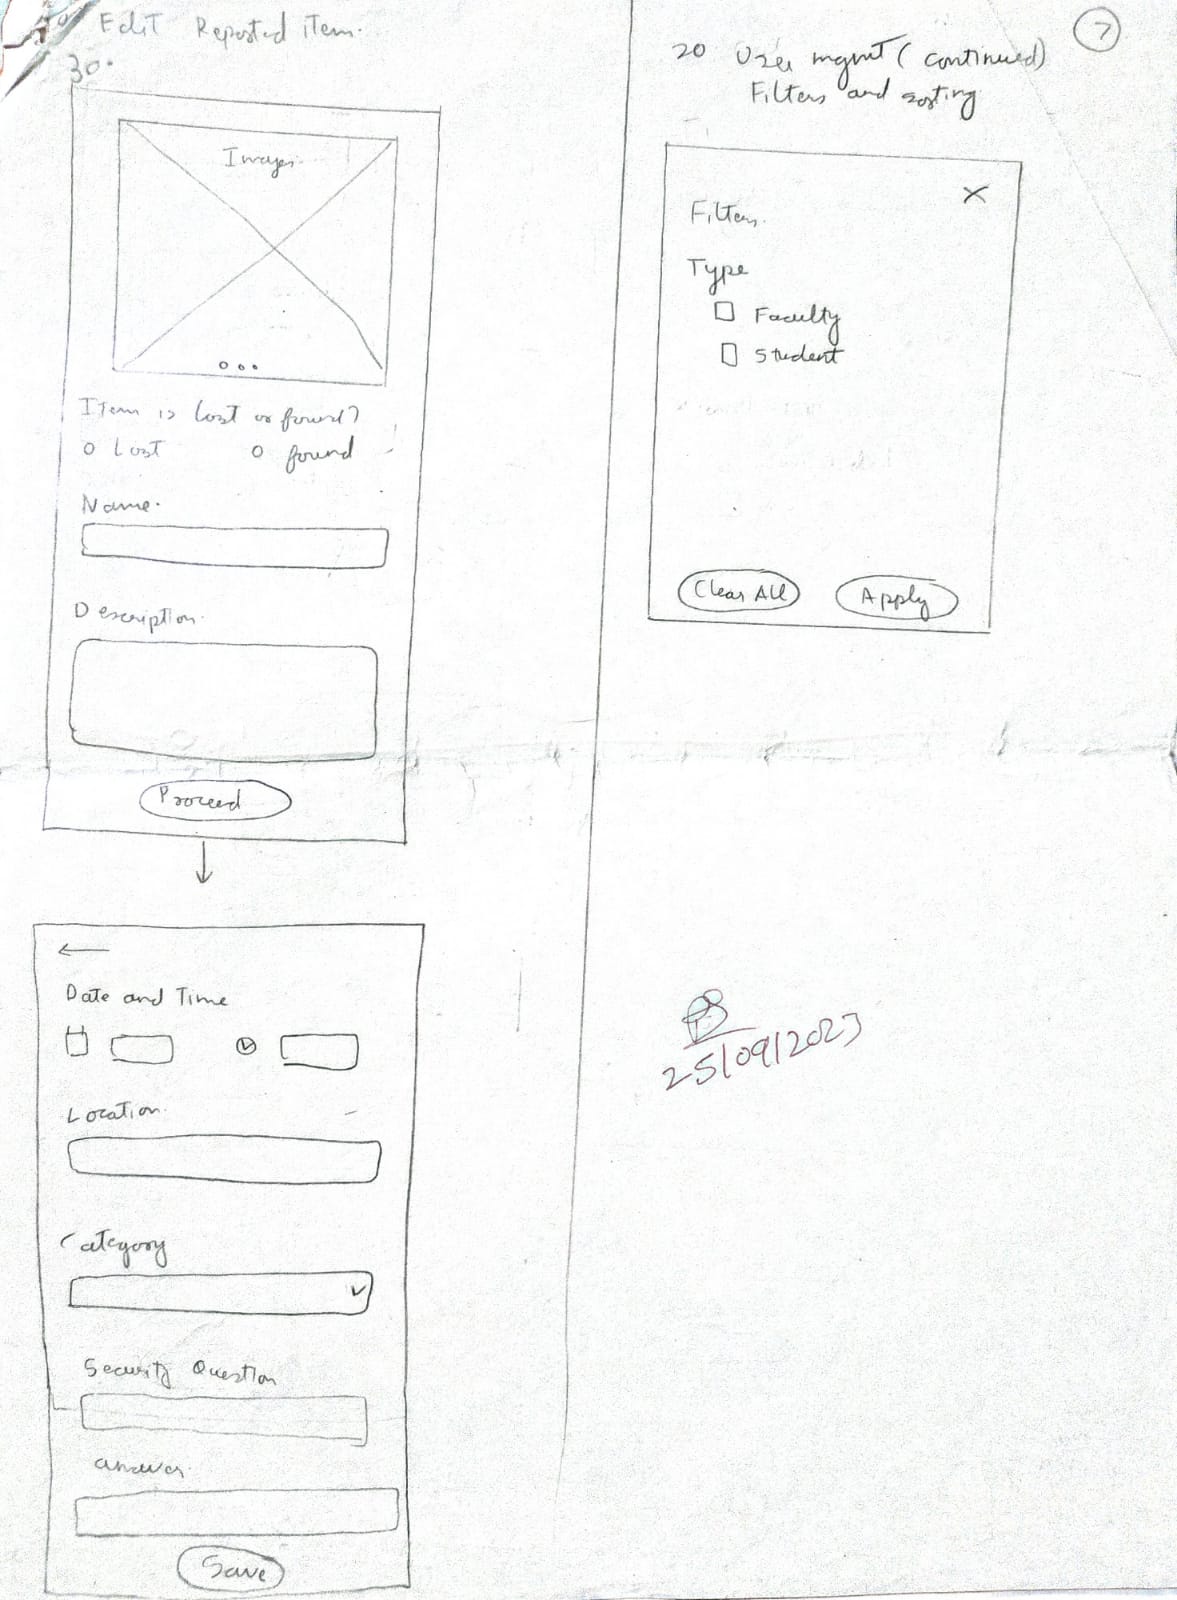 Edit Reported item.
30.
Images.
Item is Lost or found?
Lost found
Name.
Description.
Proceed
Date and Time
Location.
Category
Security Question
answer.
Save
7
20 User mgmt (continued)
Filters and sorting
X
Filters.
Type
Faculty
Student
Clear All Apply
25/09/2023